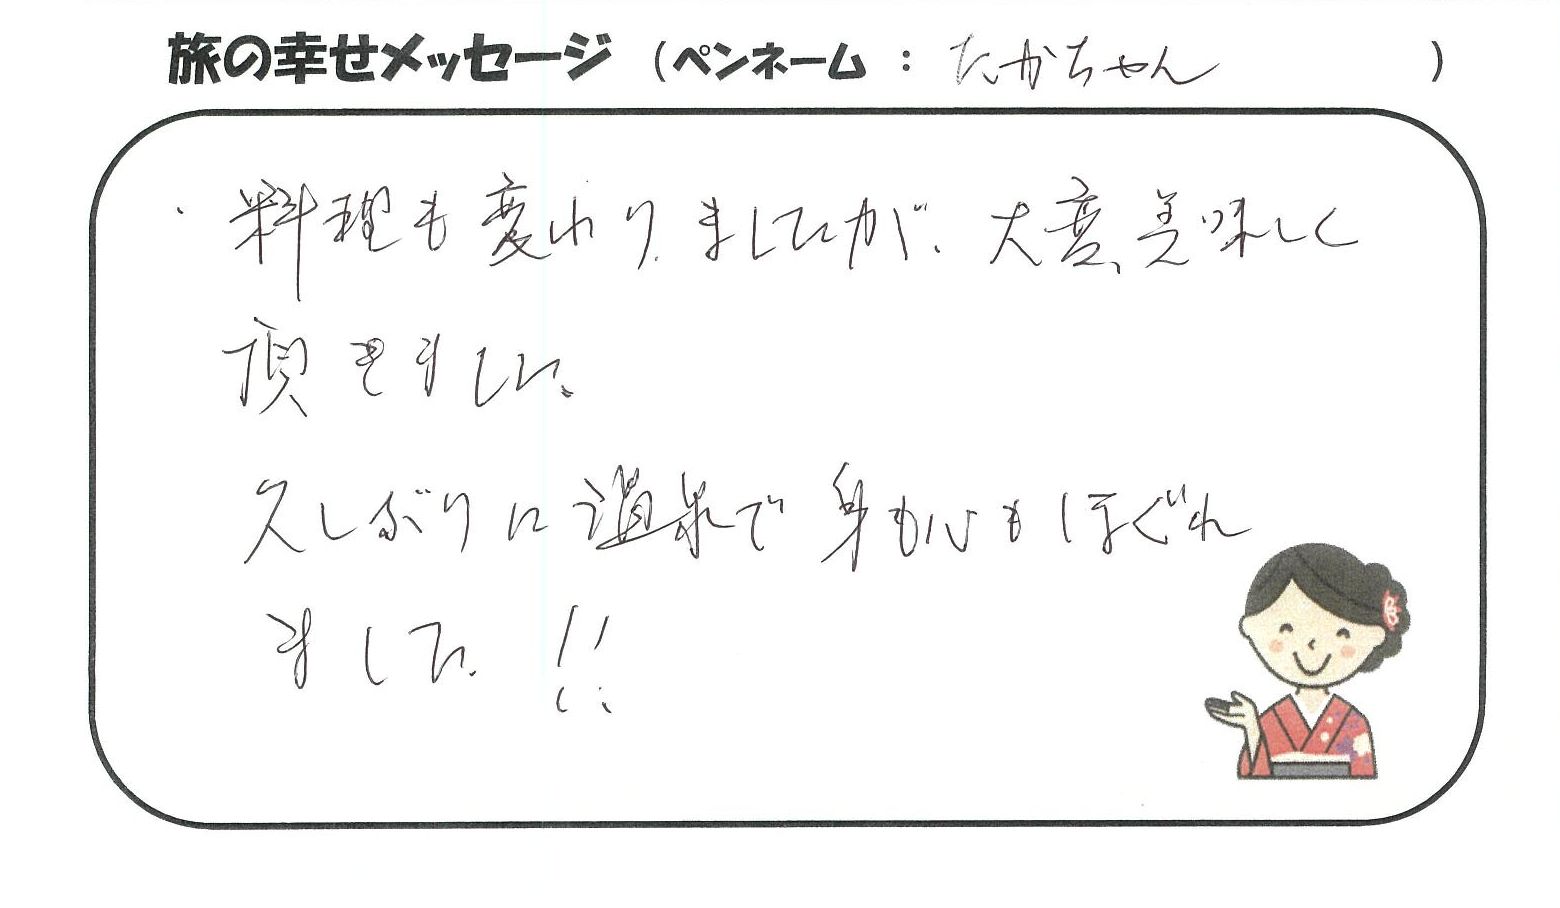 旅の幸せメッセージ（ペンネーム：たかちゃん）
・料理も変わりましたが、大変、美味しく
頂きました。
久しぶりに温泉で身も心もほぐれ
ました!!